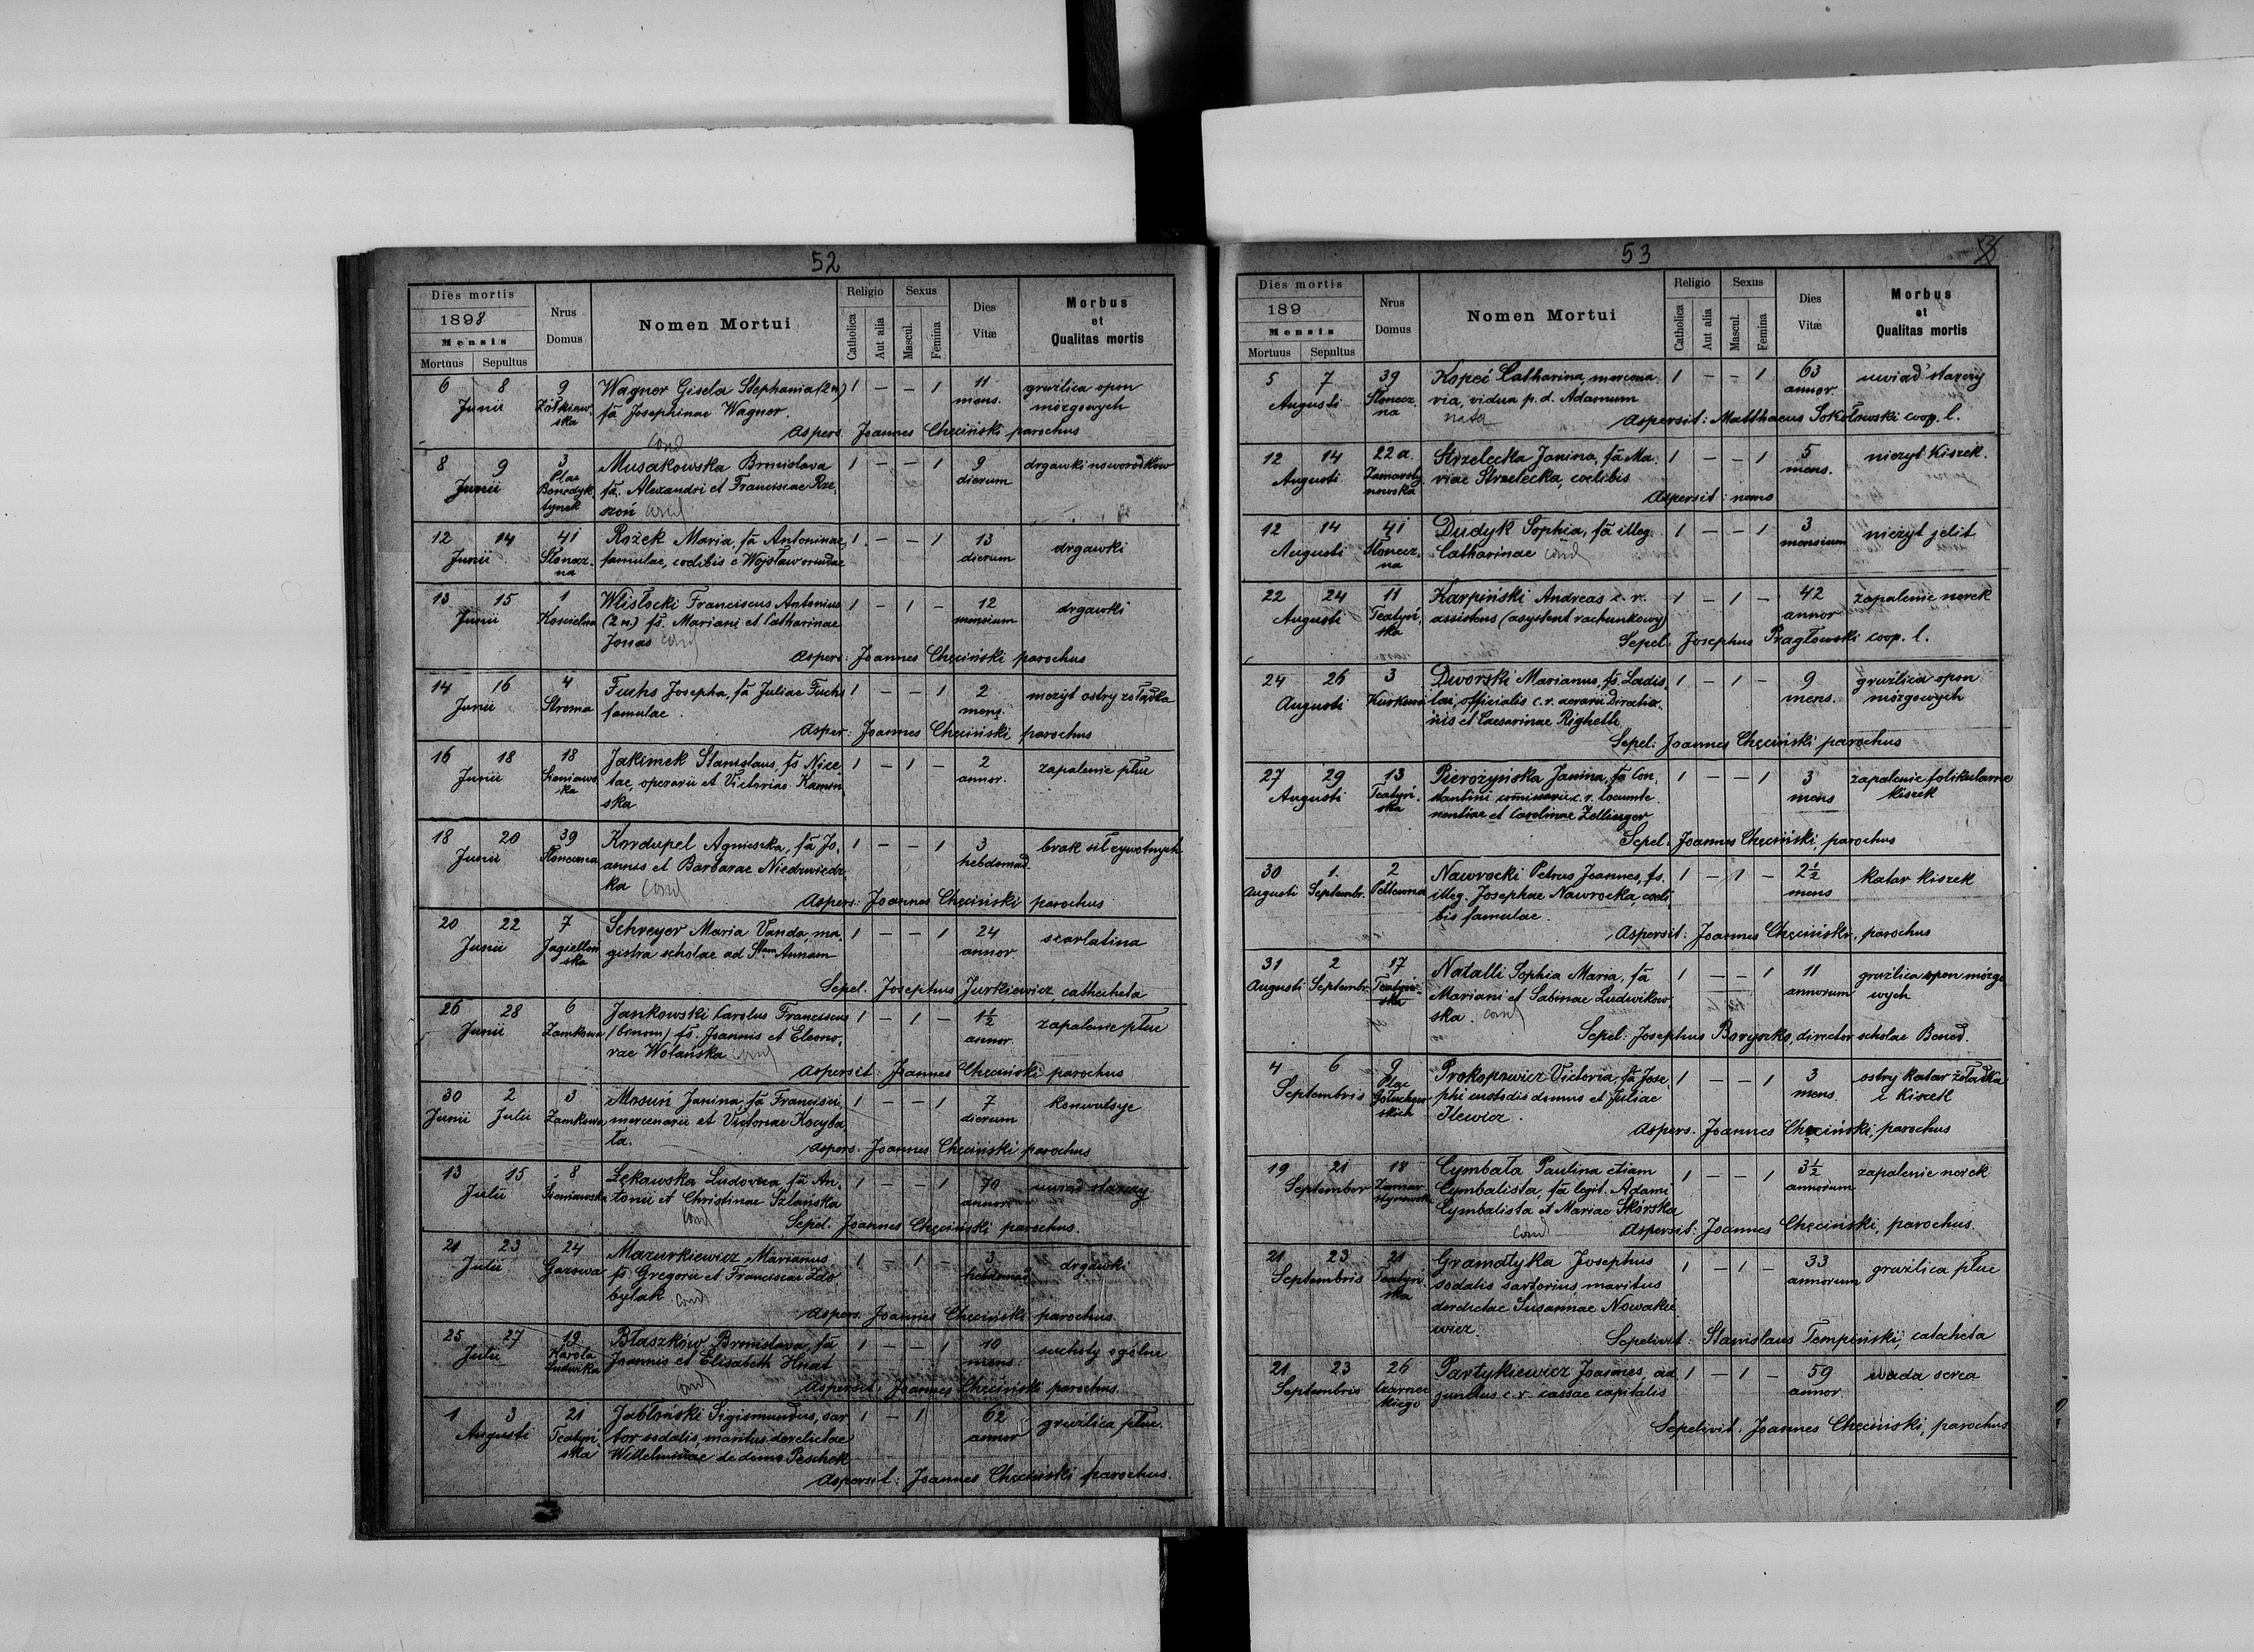 52
Dies mortis
1898
Mensis
Mortuus Sepultus
Nrus Domus
Nomen Mortui
Religio
Catholica
Aut alia
Sexus
Mascul.
Femina
Dies Vitæ
Morbus et Qualitas mortis
6 8 9 Wagner Gisela Stephania (2 n.) 1 – – 1 11 gruźlica opon
Junii Żółkiew- fa Josephinae Wagner. mens. mózgowych
ska Aspers. Joannes Chęciński parochus
cond
8 9 3 Musakowska Bronislava 1 – – 1 9 drgawki noworodków
Junii Plac fa. Alexandri et Franciscae Rze- dierum
Benedyk
tynek szoń cond
12 14 41 Rożek Maria, fa Antoninae, 1 – – 1 13 drgawki
Junii Słonecz- famulae, coelibis e Wojsław oriundae dierum
na
13 15 1 Wlisłocki Franciscus Antonius 1 – 1 – 12 drgawki
Junii Kościelna (2 n.) fs. Mariani et Catharinae mensium
Jonas cond
Aspers: Joannes Chęciński parochus
14 16 4 Fuchs Josepha, fa Juliae Fuchs 1 – – 1 2 nieżyt ostry żołądka
Junii Stroma famulae. mens.
Asper: Joannes Chęciński parochus
16 18 18 Jakimek Stanislaus, fs Nice- 1 – 1 – 2 zapalenie płuc
Junii Sieniaws tae, operarii et Victorias Kamin annor.
ka ska
18 20 39 Kordupel Agnieszka, fa Jo- 1 – – 1 3 brak sił żywotnych
Junii Słoneczna annis et Barbarae Niedzwiedz- hebdomad.
ka cond
Aspers: Joannes Chęciński parochus
20 22 7 Schreyer Maria Vanda, ma- 1 – – 1 24 scarlatina
Junii Jagielloń gistra scholae ad Stam Annam annor
ska
Sepel. Josephus Jurkiewicz, catecheta
26 28 6 Jankowski Carolus Franciscus 1 – 1 – 1½ zapalenie płuc
Junii Zamkowa (binom) fs. Joannis et Eleono- annor.
rae Wolańska cond
Aspersit: Joannes Chęciński parochus
30 2 3 Mosuń Janina, fa Francisci, 1 – – 1 7 konwulsye
Junii Julii Zamkowa mercenarii et Victoriae Kocyba- dierum
ła.
Aspers. Joannes Chęciński parochus
13 15 8 Łękawska Ludovica fa An- 1 – – 1 70 uwiąd starczy
Julii Sieniawska tonii et Christinae Szlańska annor
cond
Sepel. Joannes Chęciński parochus.
21 23 24 Mazurkiewicz Marianus 1 – 1 – 3 drgawki
Julii Gazowa fs Gregorii et Franciscae Zdo hebdomad
bylak cond
Aspers. Joannes Chęciński parochus
25 27 19 Błaszków Bronislava, fa 1 – – 1 10 suchoty ogólne
Julii Karola Joannis et Elisabeth Hnat mens.
Ludwika cond
Aspersit: Joannes Chęciński parochus.
1 3 21 Jabłoński Sigismundus, sar 1 – 1 62 gruźlica płuc.
Augusti Teatyń- tor sodalis, maritus derelictae annor
ska Wilhelminae de domo Peschek
Aspersit: Joannes Chęciński parochus.
53
Dies mortis
189
Mensis
Mortuus Sepultus
Nrus Domus
Nomen Mortui
Religio
Catholica
Aut alia
Sexus
Mascul.
Femina
Dies Vitæ
Morbus et Qualitas mortis
5 7 39 Kopeć Catharina, mercena- 1 – – 1 63 uwiąd starczy
Augusti Słonecz- ria, vidua p. d. Adamum annor.
na nata Aspersit: Matthaeus Sokołowski coop. l.
12 14 22 a. Strzelecka Janina, fa Ma- 1 – – 1 5 nieżyt kiszek.
Augusti Zamarsty riae Strzelecka, coelibis mens.
nowska Aspersit: nemo
12 14 41 Dudyk Sophia, fa illeg. 1 – – 1 3 nieżyt jelit
Augusti Słonecz- Catharinae cond mensium
na
22 24 11 Karpiński Andreas c. r. 1 – 1 – 42 zapalenie nerek
Augusti Teatyń- assistens (asystent rachunkowy) annor
ska Sepel: Josephus Pragłowski coop. l.
24 26 3 Dworski Marianus, fs. Ladis- 1 – 1 – 9 gruźlica opon
Augusti Kurkowa lai, officialis c. r. aerarii Directio- mens. mózgowych
nis et Caesarinae Righetti
Sepel: Joannes Chęciński parochus
27 29 13 Pierożyńska Janina, fa Con- 1 – – 1 3 zapalenie folikularne
Augusti Teatyń- stantini comissarii c. r. locumte- mens kiszek
ska nentiae et Carolinae Zellinger
Sepel: Joannes Chęciński, parochus
30 1. 2 Nawrocki Petrus Joannes, fs. 1 – 1 – 2½ katar kiszek
Augusti Septembr. Peltewna illeg. Josephae Nawrocka, coeli- mens
bis famulae.
Aspersit: Joannes Chęciński, parochus
31 2 17 Natalli Sophia Maria, fa 1 – – 1 11 gruźlica opon mózgo
Augusti Septembr. Teatyń- Mariani et Sabinae Ludwikow- annorum wych
ska ska. cond
Sepel: Josephus Boryszko, director scholae Bened.
4 6 9 Prokopowicz Victoria, fa Jose- 1 – – 1 3 ostry katar żołądka
Septembris Plac phi custodis domus et Juliae mens. i kiszek
Gołuchow
skich Ilewicz.
Aspers. Joannes Chęciński, parochus
19 21 18 Cymbała Paulina etiam 1 – – 1 3½ zapalenie nerek
September Zamar Cymbalista, fa legit. Adami annorum
stynowska Cymbalista et Mariae Skórska
cond Aspersit: Joannes Chęciński, parochus.
21 23 21 Gramatyka Josephus 1 – 1 – 33 gruźlica płuc
Septembris Teatyń- sodalis sartorius maritus annorum
ska derelictae Susannae Nowakie
wicz.
Sepelivit: Stanislaus Tempiński, catecheta
21 23 26 Partykiewicz Joannes, ad 1 – 1 – 59 wada serca
Septembris Czarnec junctus c. r. cassae capitalis annor
kiego
Sepelivit: Joannes Chęciński, parochus